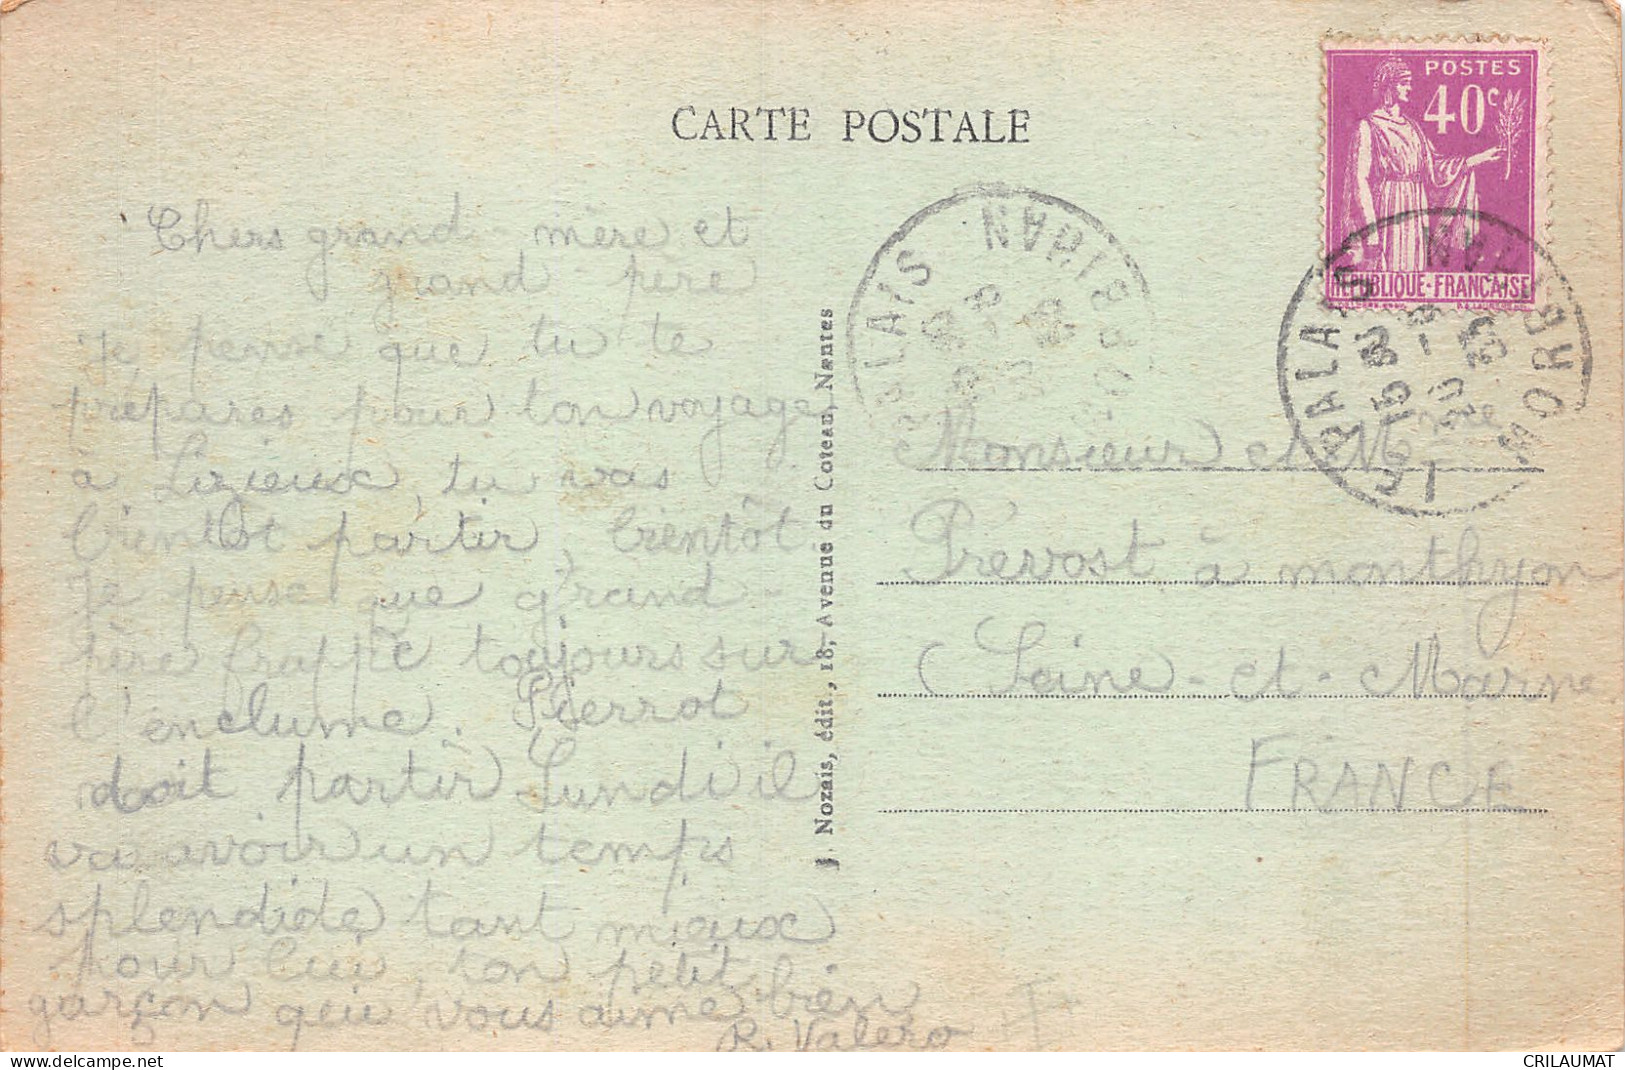 CARTE POSTALE
POSTES
40c
REPUBLIQUE-FRANCAISE
LE PALAIS MORBIHAN
LE PALAIS MORBIHAN
Chers grand-mère et
grand-père
Je pense que tu te
prépares pour ton voyage
à Lizieux, tu vas
bientôt partir, bientôt
Je pense que grand-
père frappe toujours sur
l'enclume. Pierrot
doit partir Lundi il
va avoir un temps
splendide, tant mieux
pour lui, ton petit
garçon qui vous aime bien
R. Valero
J. Nozais, édit., 18, Avenue du Coteau, Nantes
Monsieur et Mme
Prévost à monthyon
(Seine-et-Marne
FRANCE
CRILAUMAT